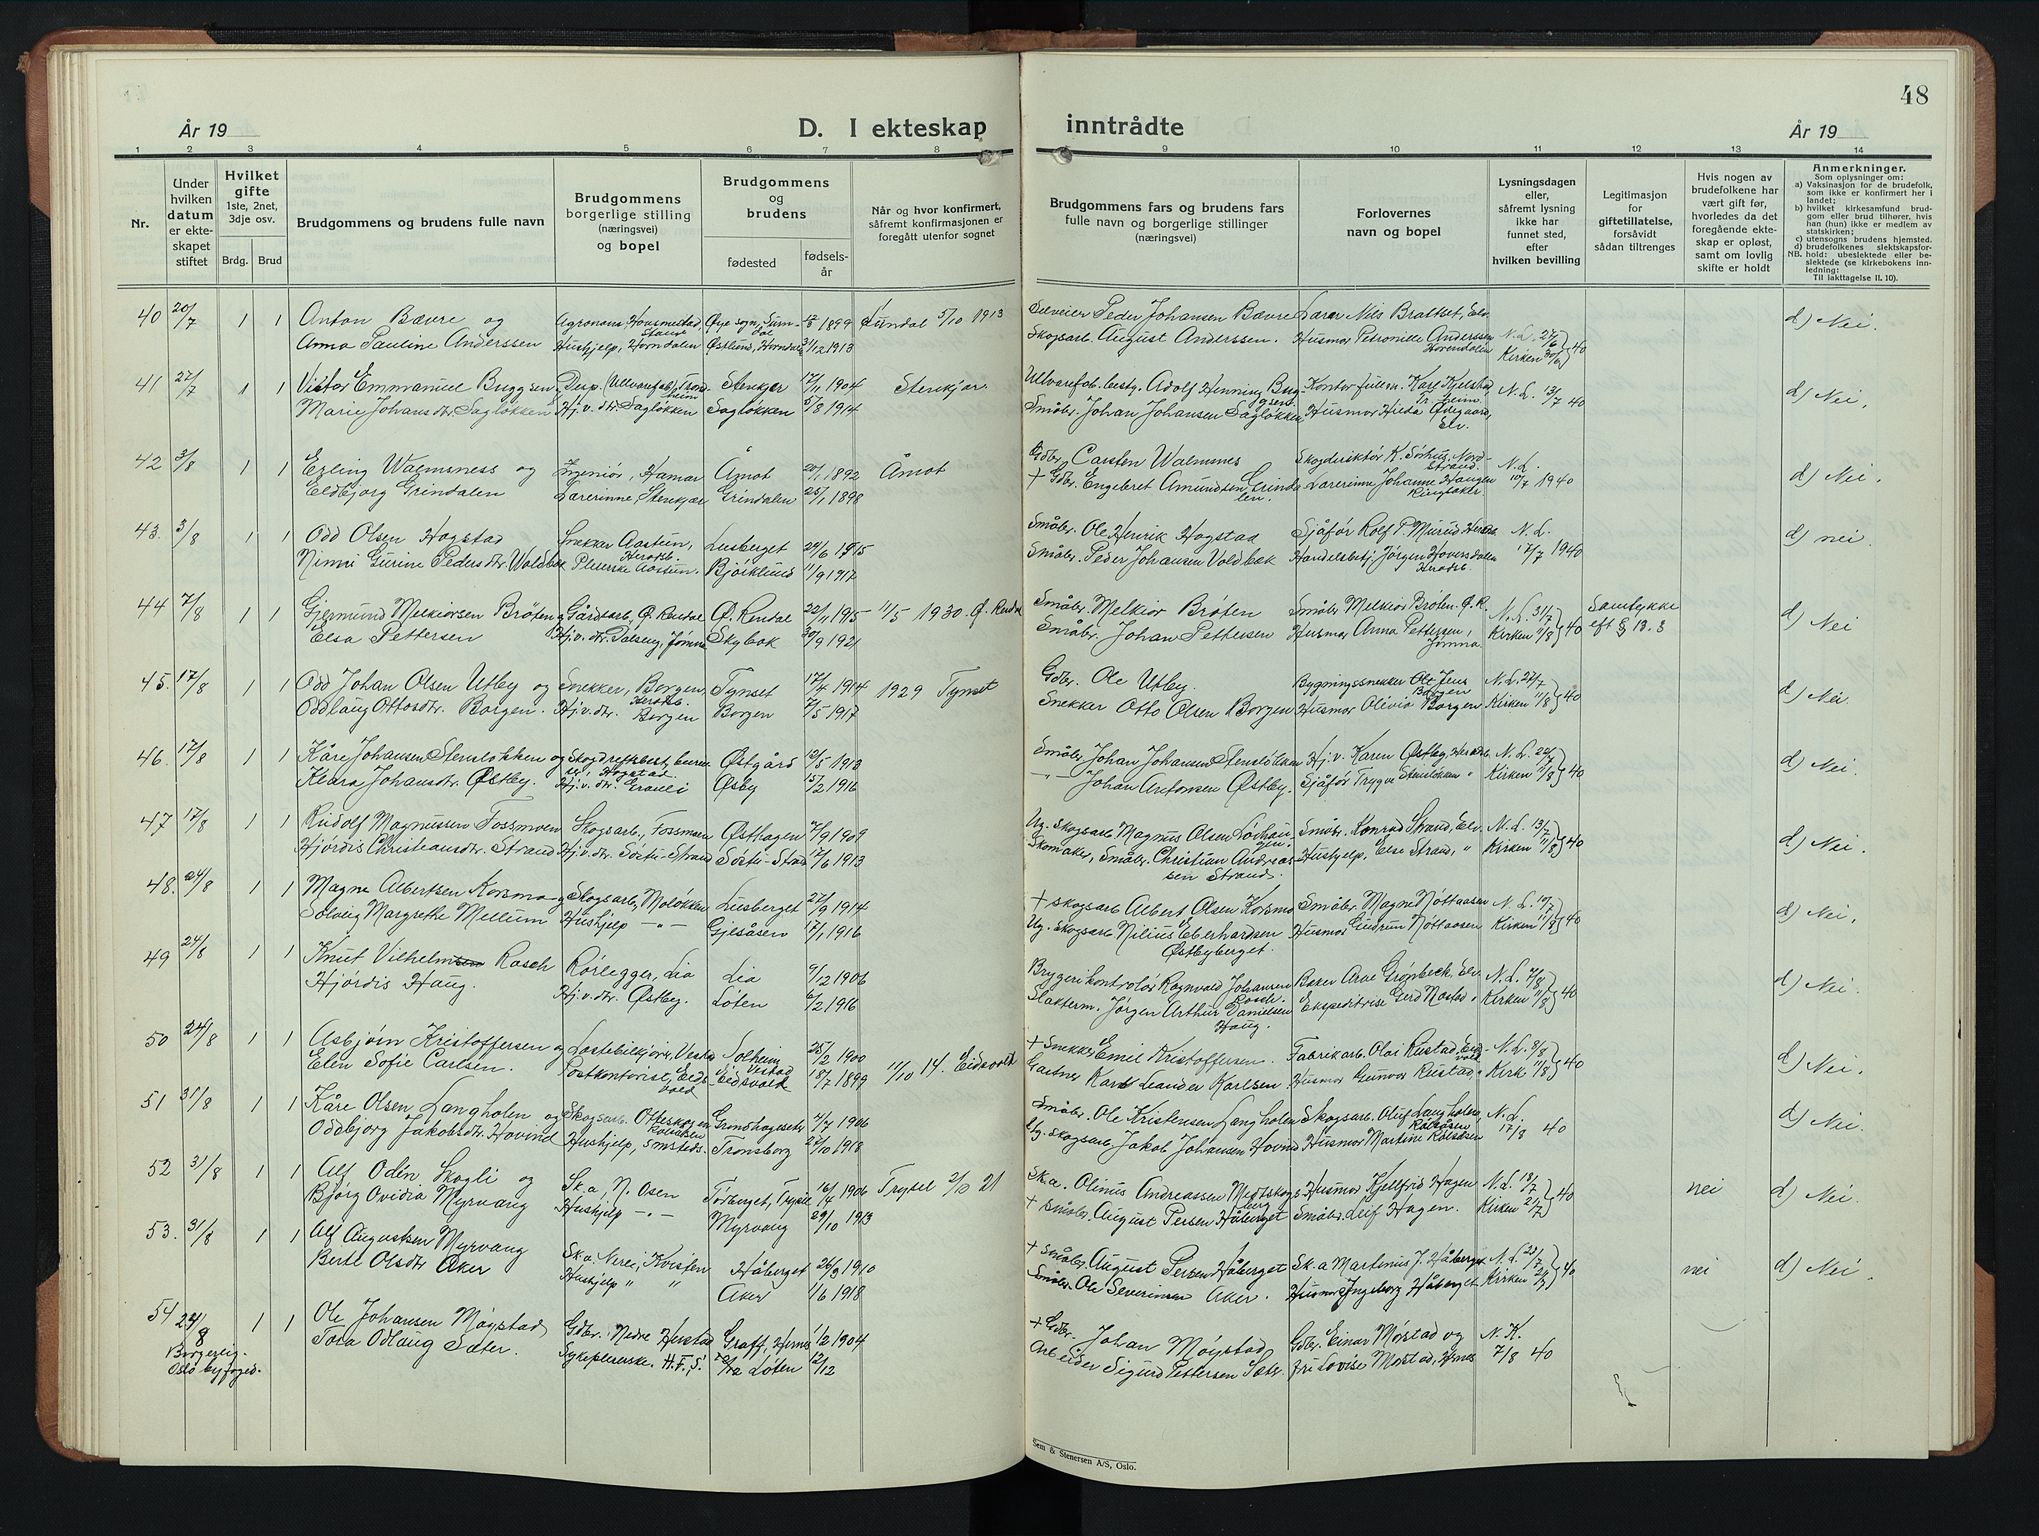 48
År 19
D. I ekteskap
inntrådte
År 19
1 2 3 4 5 6 7 8 9 10 11 12 13 14
Nr.
Under hvilken datum er ekteskapet stiftet
Hvilket gifte 1ste, 2net, 3dje osv.
Brdg. Brud
Brudgommens og brudens fulle navn
Brudgommens borgerlige stilling (næringsvei) og bopel
Brudgommens og brudens
fødested
fødsels-år
Når og hvor konfirmert, såfremt konfirmasjonen er foregått utenfor sognet
Brudgommens fars og brudens fars fulle navn og borgerlige stillinger (næringsvei)
Forlovernes navn og bopel
Lysningsdagen eller, såfremt lysning ikke har funnet sted, efter hvilken bevilling
Legitimasjon for giftetillatelse, forsåvidt sådan tiltrenges
Hvis nogen av brudefolkene har vært gift før, hvorledes da det foregående ekteskap er opløst, samt om lovlig skifte er holdt
Anmerkninger.
Som oplysninger om:
a) Vaksinasjon for de brudefolk, som ikke er konfirmert her i landet;
b) hvilket kirkesamfund brudgom eller brud tilhører, hvis han (hun) ikke er medlem av statskirken;
c) utensogns brudens hjemsted.
d) brudefolkenes slektskapsforhold: ubeslektede eller beslektede (se kirkebokens innledning:
NB.
Til iakttagelse II. 10).
40 20/7 1 1 Anton Bævre og Agronom, Øye sogn, 1899 5/10 1913 Peder Johansen Bævre Lærer Nils Brattset, Elv.
Anna Pauline Anderssen Hushjelp, Horndalen Østlund, Horndalen 31/12 1913 Skogsarb. August Anderssen. Husmor Petronille Anderssen N.L. 27/6 Kirken 30/6 40 d) Nei.
41 27/7 1 1 Viktor Emmanuel Buggsen Stenkjer 17/11 1904 Stenkjær. Adolf Henning Buggsen Kontorfulm. Karl Kjelstad, Tr.heim N.L. 13/7 40 d) Nei.
Marie Johansdtr. Sagløkken Hj.v. dtr. Sagløkken Sagløkken 5/8 1914 Småbr. Johan Johansen Sagløkken, Husmor Hilda Ødegaard, Elv.
42 3/8 1 1 Erling Walmsness og Ingeniør, Hamar Åmot 20/1 1892 Åmot Gdbr. Carsten Walmsnes Skogdirektør K. Sørhus, Nordstrand. N.L. 10/7 1940 d) Nei.
Eldbjørg Grindalen Lærerinne, Stenkjær Grindalen 25/1 1898 + Gdbr. Engebret Amundsen Grindalen. Lærerinne Johanne Haugen Ringsaker
43. 3/8 1 1 Odd Olsen Hogstad Snekker Aastun, Heradsb. Lusberget 24/6 1915 Småbr. Ole Henrik Hogstad Sjåfør Rolf P. Murud Heradsb. N.L. 17/7 1940 d) nei.
Ninni Gurine Pedersdtr. Voldbak Pleierske Aastun. Bjørklund 11/9 1917 Småbr. Peder Johansen Voldbak Handelsbetj. Jørgen Hoversdalen Heradsb.
44 7/8 1 1 Gjermund Melkiorsen Brøten Gårdsarb. Ø. Rendal Ø. Rendal 22/11 1915 11/5 1930. Ø. Rendal Småbr. Melkior Brøten Småbr. Melkior Brøten. Ø.R. N.L. 31/7 Samtykke eft § 13.3 d) Nei
Elsa Pettersen Hj.v. dtr. Dalseng, Jømna Skybak 30/9 1921 Småbr. Johan Pettersen Husmor Anna Pettersen, Jømna Kirken 11/8 40
45. 17/8 1 1 Odd Johan Olsen Utby og Snekker, Borgen, Heradsb. Tynset 17/4 1914 1929 Tynset Gdbr. Ole Utby. Bygningssnekker Ole Jens Borgen N.L. 27/7 d) Nei.
Oddlaug Ottosdtr. Borgen. Hj.v. dtr. Borgen Borgen 7/5 1917 Snekker Otto Olsen Borgen Husmor Olivia Borgen Kirken 11/8 40
46. 17/8 1 1 Kåre Johansen Stensløkken og Hogstad. Østgård 12/5 1913 Småbr. Johan Johansen Stensløkken Hj.v. Karen Østby, Heradsb. N.L. 22/7 d) Nei.
Klara Johansdtr. Østby. Hj.v. dtr. Øsby 15/2 1916 -"- Johan Antonsen Østby. Sjåfør Trygve Stensløkken " Kirken 11/8 40
47 17/8 1 1 Rudolf Magnussen Fossmoen Skogsarb., Fossmoen Østhagen 7/9 1909 Ug. Skogsarb. Magnus Olsen Småbr. Konrad Strand, Elv. N.L. 13/7 d) Nei.
Hjørdis Christiansdtr. Strand Hj.v. dtr. Sørtu-Strand 17/6 1913 Skomaker, Småbr. Christian Andreassen Strand. Hushjelp, Else Strand, " Kirken 11/8 40
48. 24/8 1 1 Magne Albertsen Korsmo og Skogsarb., Moløkken Lusberget 27/9 1914 + Skogsarb. Albert Olsen Korsmo Småbr. Magne Nøttaasen N.L. 10/7 d) Nei.
Solveig Margrethe Mellum Hushjelp -"- Gjelsåsen 17/1 1916 Ug. Skogsarb. Nilius Eberhardsen Østbyberget. Husmor Gudrun Nøttaasen Kirken 11/8 40
49 24/8 1 1 Knut Vilhelm Rosch Rørlegger, Lia Lia 9/12 1906 Bryggerikontrolør Ragnvald Johansen Rosch. Baker Arne Grønbeck, Elv. N.L. 7/8 d) Nei.
Hjørdis Haug. Hj.v. dtr. Østby. Løten 6/2 1916 Slakterm. Jørgen Arthur Danielsen Haug. Ekspeditrise Gerd Nøstad " Kirken 11/8 40
50 24/8 1 1 Asbjørn Kristoffersen og Lastebilkjører, Vestad Solheim, Vestad 25/2 1900 + Snekker Emil Kristoffersen. Fabrikarb. Olai Rustad, Eidsvold N.L. 8/8 d) Nei.
Elen Sofie Carlsen. Postkontorist, Eidsvold Eidsvold 18/7 1899 11/10 14. Eidsvold Gartner Karl Leander Karlsen. Husmor Gunvor Rustad, " Kirk 11/8 40
51 31/8 1 1 Kåre Olsen Langholen og Skogsarb. Grindhagesetr 7/7 1906 Småbr. Ole Kristensen Langholen Skogsarb. Oluf Langholen, N.L. 17/8 40 d) Nei.
Oddbjørg Jakobsdtr. Hovind Hushjelp, smsteds. Tronsberg 22/10 1918 Ug. Skogsarb. Jakob Johansen Hovind Husmor Martine
52 31/8 1 1 Alf Odin Skogli og Sk.a., N. Osen Trysil 16/4 1906 Trysil 2/10 21 Sk.a. Olinus Andreassen Husmor Kjellfrid Hagen N.L. 19/7 nei d) Nei.
Bjørg Ovidia Myrvang Hushjelp -"- Myrvang 29/10 1913 + Småbr. August Persen Håberget Småbr. Leif Hagen. Kirken 21/7 40
53. 31/8 1 1 Alf Augustsen Myrvang Sk.a. Nerli, Kvisten Håberget 26/3 1910 + Småbr. August Persen Håberget Sk.a. Martinus J. Håberget N.L. nei d) Nei.
Bertl Olsdtr Aker Hushjelp " " Aker 1/6 1918 Småbr. Ole Severinsen Aker. Husmor Ingeborg Håberget Kirken 40
54 24/8 1 1 Ole Johansen Møystad Gdbr. Nedre Herstad Graff, Hernes 1/2 1904 + Gdbr. Johan Møystad Gdbr. Einar Mørstad og N.K. 7/8 40
Borgerlig. Oslo byfoged. Tora Odlaug Sæter. Sykepleierske. H.F.S. Løten 12/12 Arbeider Sigurd Pettersen Sæter. fru Lovise Mørstad, Hernes
Sem & Stenersen A/S, Oslo.